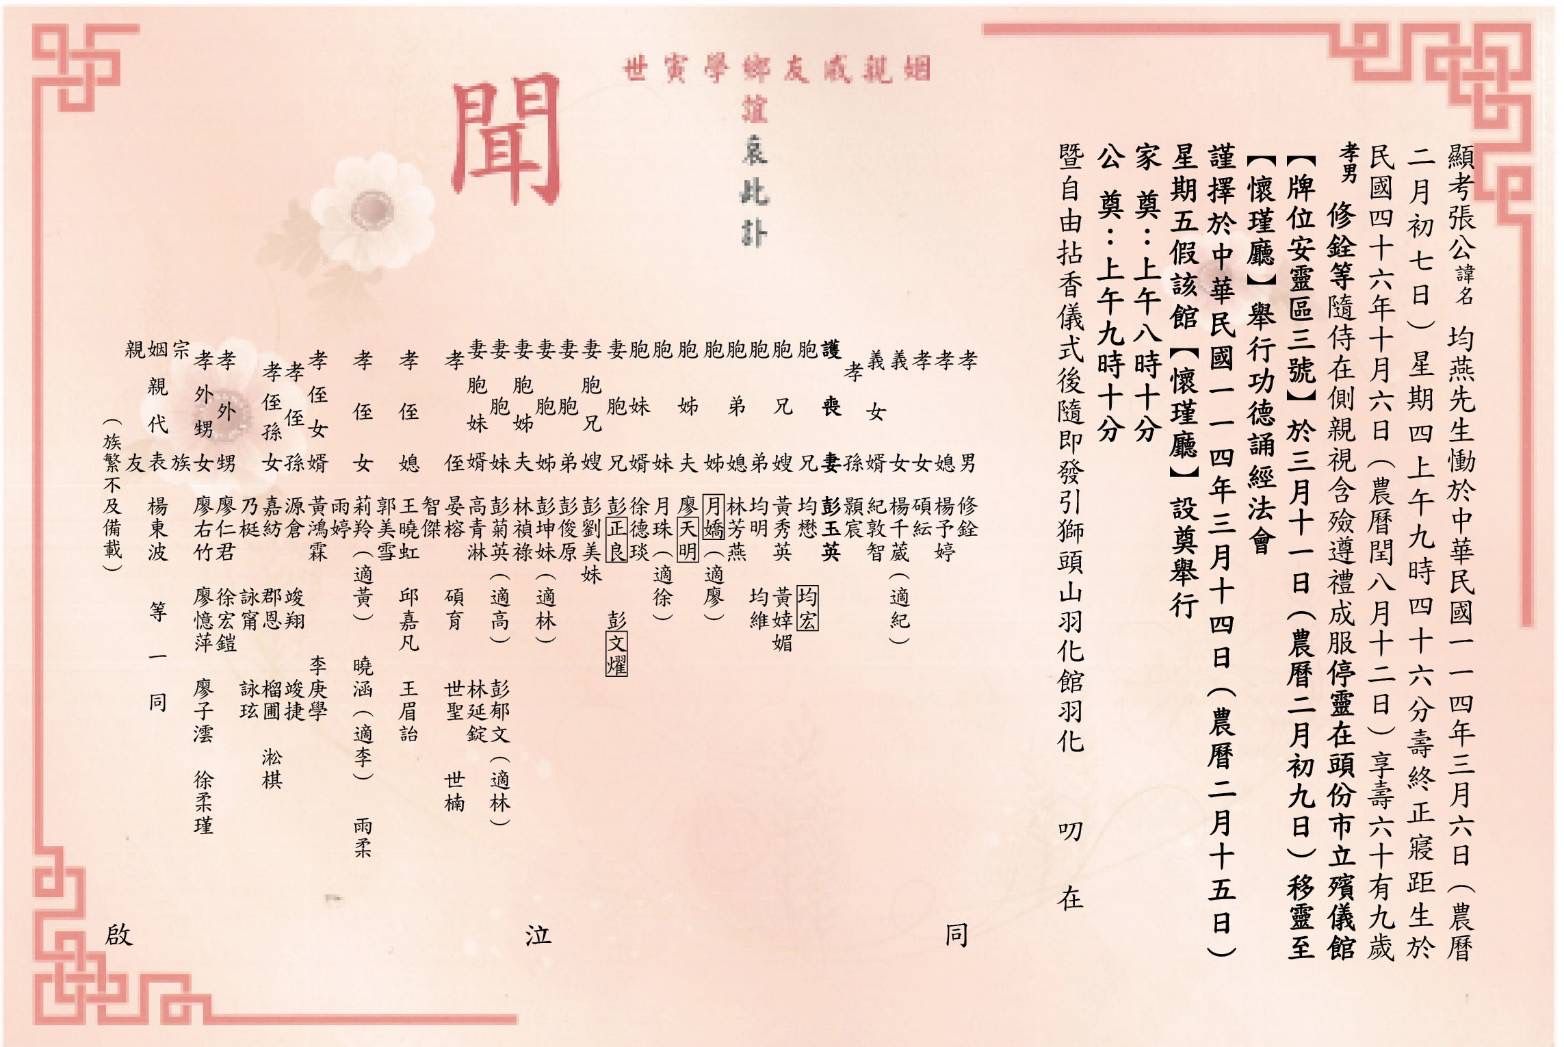 顯考張公諱名 均燕先生慟於中華民國一一四年三月六日（農曆
二月初七日）星期四上午九時四十六分壽終正寢距生於
民國四十六年十月六日（農曆閏八月十二日）享壽六十有九歲
孝男 修銓等隨侍在側親視含殮遵禮成服停靈在頭份市立殯儀館
【牌位安靈區三號】於三月十一日（農曆二月初九日）移靈至
【懷瑾廳】舉行功德誦經法會
謹擇於中華民國一一四年三月十四日（農曆二月十五日）
星期五假該館【懷瑾廳】設奠舉行
家 奠：上午八時十分
公 奠：上午九時十分
暨自由拈香儀式後隨即發引獅頭山羽化館羽化 叨 在
姻親戚友鄉學寅世
誼哀此訃
聞
孝男 修銓
孝媳 楊予婷
孝女 碩紜
義女 楊千葳（適紀）
義女婿 紀敦智
孝孫 顥宸
護喪妻 彭玉英
胞兄 均懋 均宏
胞兄嫂 黃秀英 黃婞媚
胞弟 均明 均維
胞弟媳 林芳燕
胞姊 月嬌（適廖）
胞姊夫 廖天明
胞妹 月珠（適徐）
胞妹婿 徐德琰
妻胞兄 彭正良 彭文燿
妻胞兄嫂 彭劉美妹
妻胞弟 彭俊原
妻胞姊 彭坤妹（適林）
妻胞姊夫 林禎祿
妻胞妹 彭菊英（適高） 彭郁文（適林）
妻胞妹婿 高青淋 林延錠
孝侄 晏榕 碩育 世聖 世楠
智傑
孝侄媳 王曉虹 邱嘉凡 王眉詒
郭美雪
孝侄女 莉羚（適黃） 曉涵（適李） 雨柔
雨婷
孝侄女婿 黃鴻霖 李庚學
孝侄孫 源倉 竣翔 竣捷
孝侄孫女 嘉紡 郡恩 榴圃 淞棋
乃梃 詠甯 詠玹
孝外甥 廖仁君 徐宏鎧
孝外甥女 廖右竹 廖憶萍 廖子澐 徐柔瑾
宗族
姻親代表 楊東波 等一同
親友
（族繁不及備載）
同 泣 啟